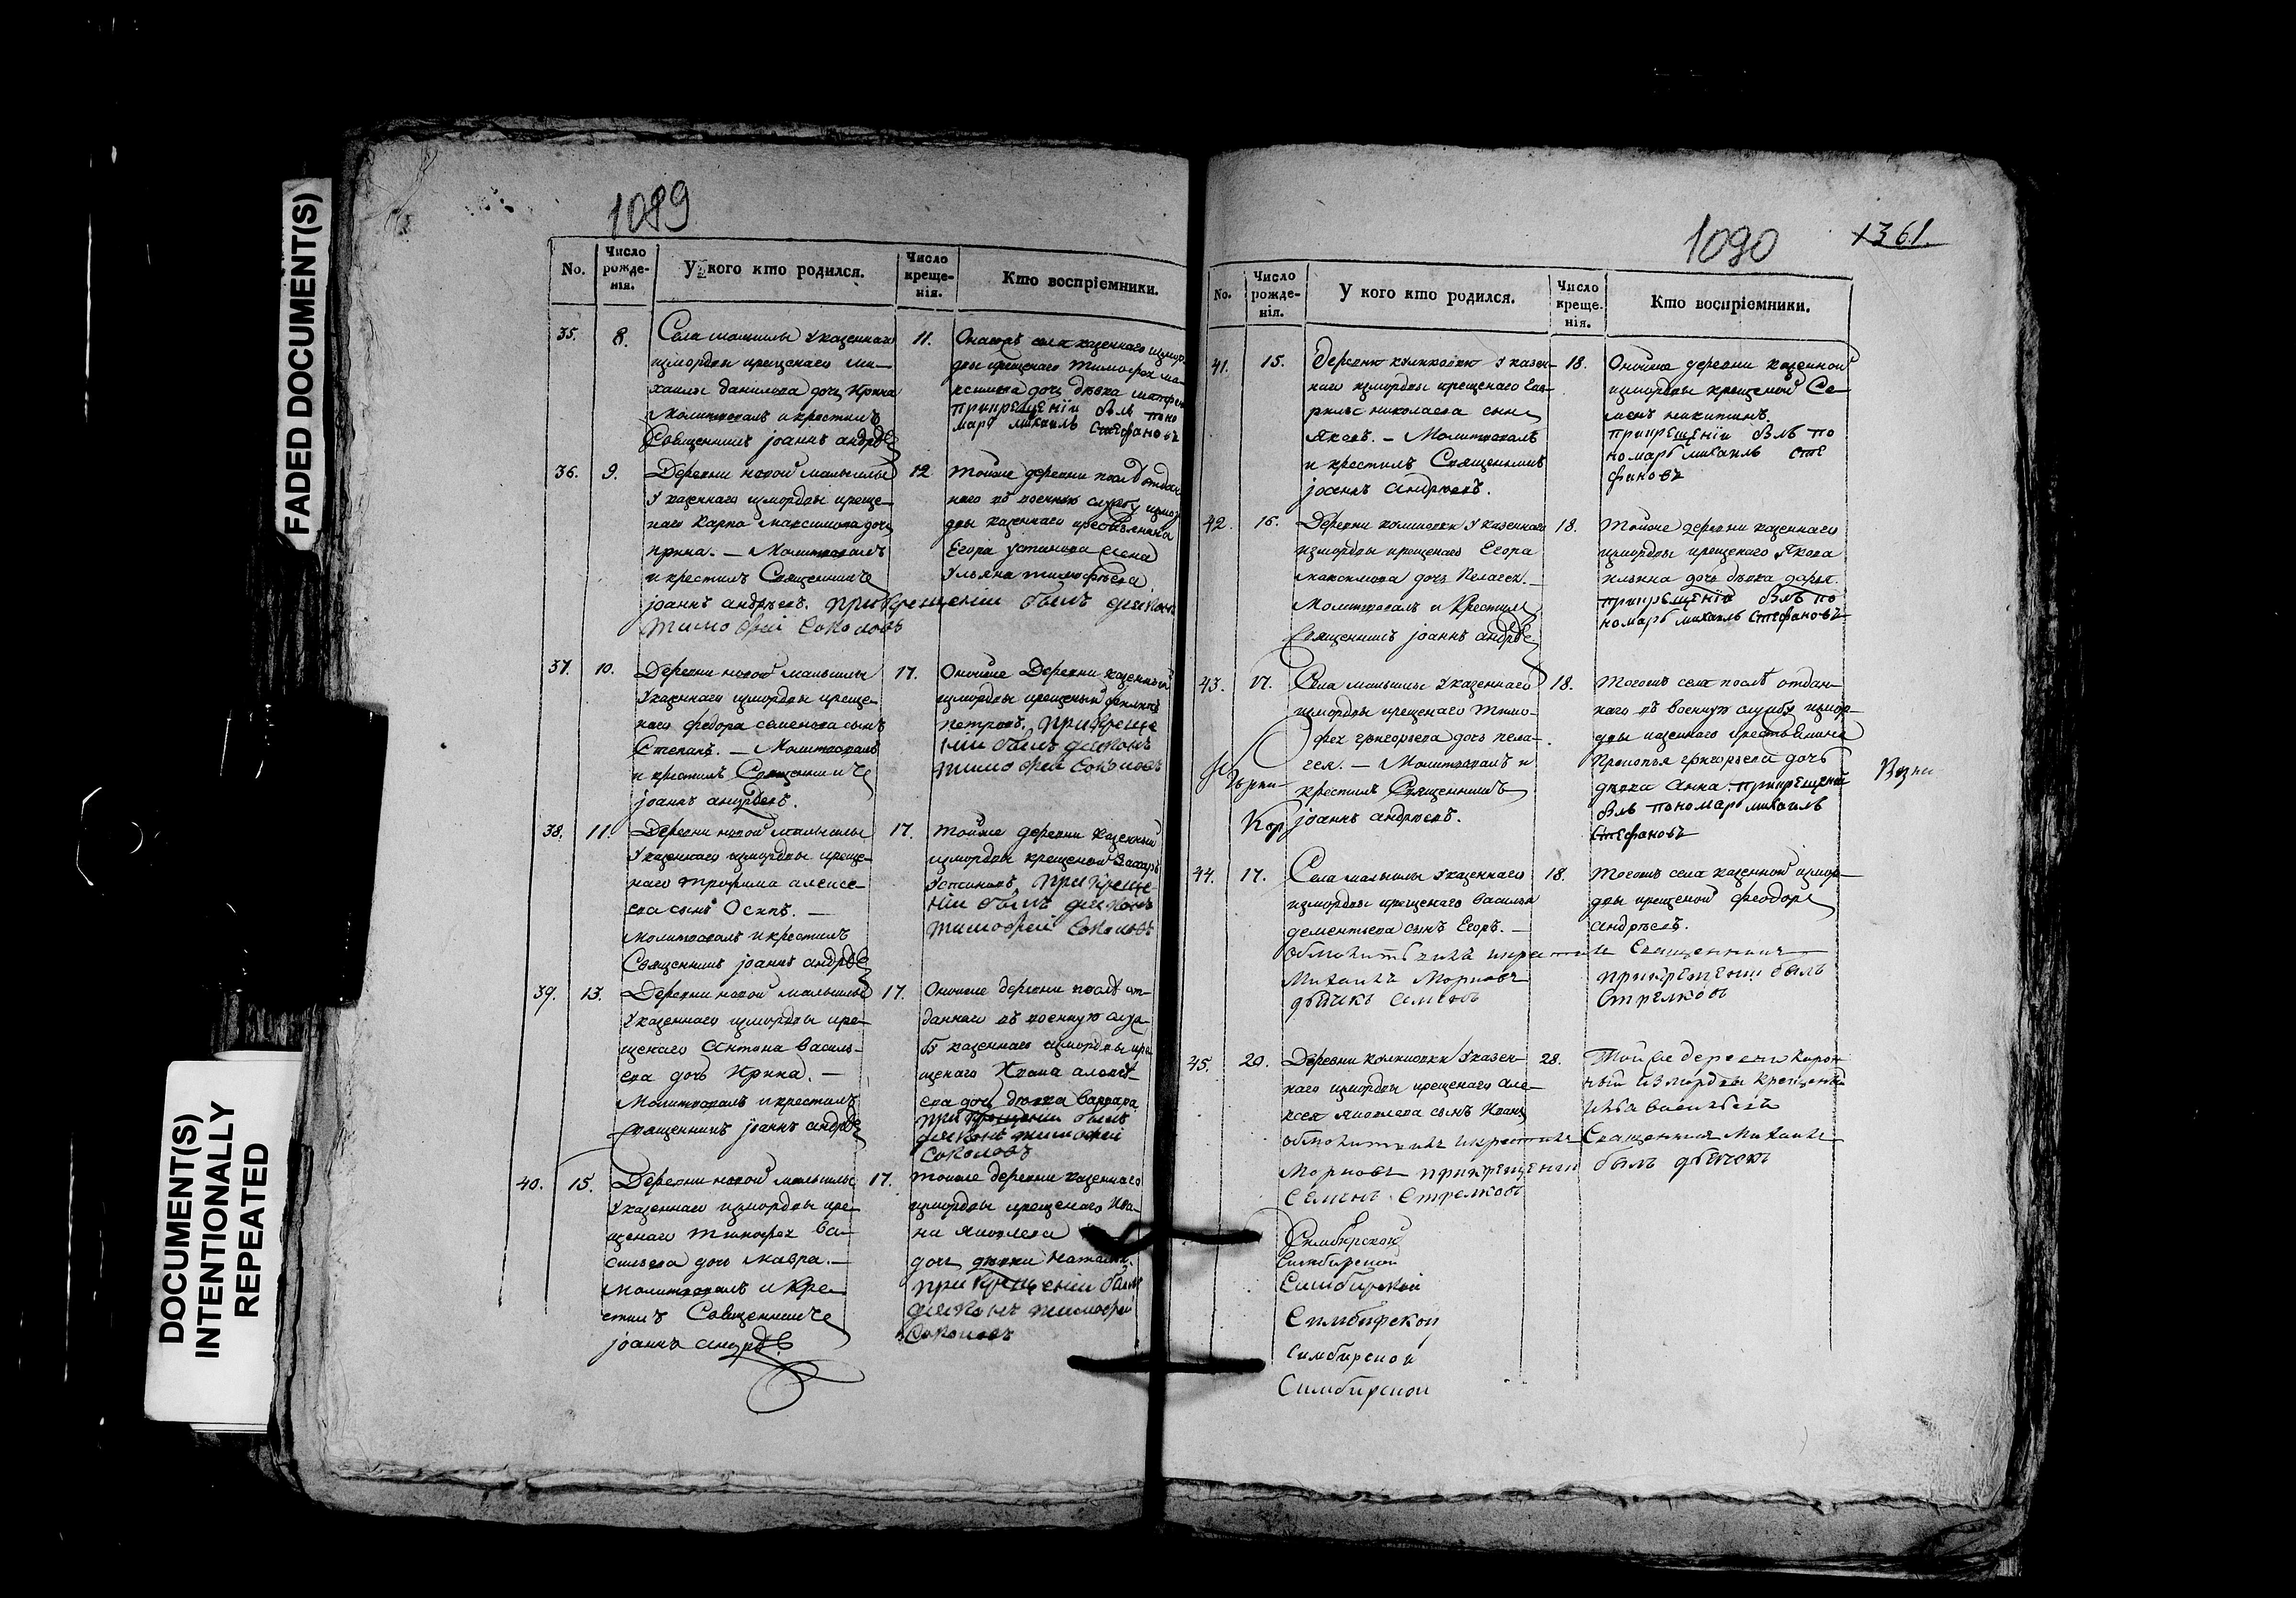 FADED DOCUMENT(S)
DOCUMENT(S)
INTENTIONALLY
REPEATED
1089
No.
Число
рожде-
нія.
У кого кто родился.
Число
креще-
нія.
Кто воспріемники.
35.
8.
Села малыклы У казеннаго
измордвы крещенаго ми-
хаилы данилова дочь Ирина
Молитвовалъ и крестилъ
Священникъ іоаннъ андрѣе
11.
Онагожъ села казеннаго измор
двы крещенаго Тимофея ма-
ксимова дочь дѣвка матре
прикрещеніи былъ поно
марь михаилъ Стефановъ
36.
9.
Деревни новой малыклы
У казеннаго измордвы креще-
наго Карпа максимова дочь
ирина. — Молитвовалъ
и крестилъ Священниче
іоаннъ андрѣевъ. прикрещеніи былъ діяконъ
тимофей Соколовъ
12
Тойже деревни послѣ отдан
наго въ военную службу измор
двы казеннаго крестьянина
Егора устинова жена
Ульяна тимофѣева
37.
10.
Деревни новой малыклы
У казеннаго измордвы креще-
наго федора семенова сынъ
Степанъ. — Молитвовалъ
и крестилъ Священниче
іоаннъ андрѣевъ.
17.
Оной же Деревни казенный
измордвы крещеный
петровъ. прикреще
ніи былъ діяконъ
тимофей Соколовъ
38.
11.
Деревни новой малыклы
У казеннаго измордвы креще-
наго трофима алексе-
ева сынъ Осипъ. —
Молитвовалъ и крестилъ
Священникъ іоаннъ андрѣе
17.
Тойже деревни казенный
измордвы крещеной Захаръ
Устиновъ. прикреще-
ніи былъ діяконъ
тимофей Соколовъ
39.
13.
Деревни новой малыклы
У казеннаго измордвы кре-
щенаго Антона василь-
ева дочь Ирина. —
Молитвовалъ и крестилъ
Священникъ іоаннъ андрѣе
17.
Оной же деревни послѣ от-
даннаго въ военную служ-
бу казеннаго измордвы кре
щенаго Ивана алексѣ-
ева дочь дѣвка варвара.
при крещеніи былъ
діяконъ тимофей
Соколовъ
40.
15.
Деревни новой малыклы
У казеннаго измордвы кре-
щенаго тимофея ва-
сильева дочь мавра. —
Молитвовалъ и кре-
стилъ Священниче
іоаннъ андрѣе
17.
Тойже деревни казеннаго
измордвы крещенаго Ива-
на яковлева
дочь дѣвки наталья.
при крещеніи былъ
діяконъ тимофей
Соколовъ
1090
1361.
No.
Число
рожде-
нія.
У кого кто родился.
Число
креще-
нія.
Кто воспріемники.
41.
15.
Деревни У казен-
наго измордвы крещенаго Гав-
рилы николаева сынъ
Яковъ. — Молитвовалъ
и крестилъ Священникъ
іоаннъ андрѣевъ.
18.
Онойже деревни казенной
измордвы крещеной Се-
менъ никитинъ.
прикрещеніи былъ по
номарь михаилъ сте
фановъ
42.
16.
Деревни У казеннаго
измордвы крещенаго Егора
максимова дочь Пелагея. —
Молитвовалъ и крестилъ
Священникъ іоаннъ андрѣе
18.
Тойже деревни казеннаго
измордвы крещенаго Якова
ильина дочь дѣвка дарья.
прикрещеніи былъ по
номарь михаилъ Стефановъ
43.
17.
Села малыклы У казеннаго
измордвы крещенаго Тимо-
фея григорьева дочь пела-
гея. — Молитвовалъ и
крестилъ Священникъ
іоаннъ андрѣевъ.
Кор
18.
Тогожъ села послѣ отдан-
наго въ военную службу измор-
двы казеннаго крестьянина
Прокопья григорьева дочь
дѣвка Анна. прикрещеніи
былъ пономарь михаилъ
Стефановъ
44.
17.
Села малыклы У казеннаго
измордвы крещенаго василья
дементьева сынъ Егоръ. —
обмолитвилъ и крестилъ Священникъ
Михаилъ Морновъ прикрещеніи былъ
дьячекъ семенъ Стрелковъ
18.
Тогожъ села казенной измор-
двы крещеной феодоръ
андрѣевъ.
45.
20.
Деревни У казен-
наго измордвы крещенаго але-
ксея яковлева сынъ Иванъ
обмолитвилъ и крестилъ Священникъ Михаилъ
Морновъ прикрещеніи былъ дьячекъ
Семенъ Стрелковъ
28.
Той же деревни
измордвы крещеный
васильевъ
Симбирской
Симбирской
Симбирской
Симбирской
Симбирской
Симбирской